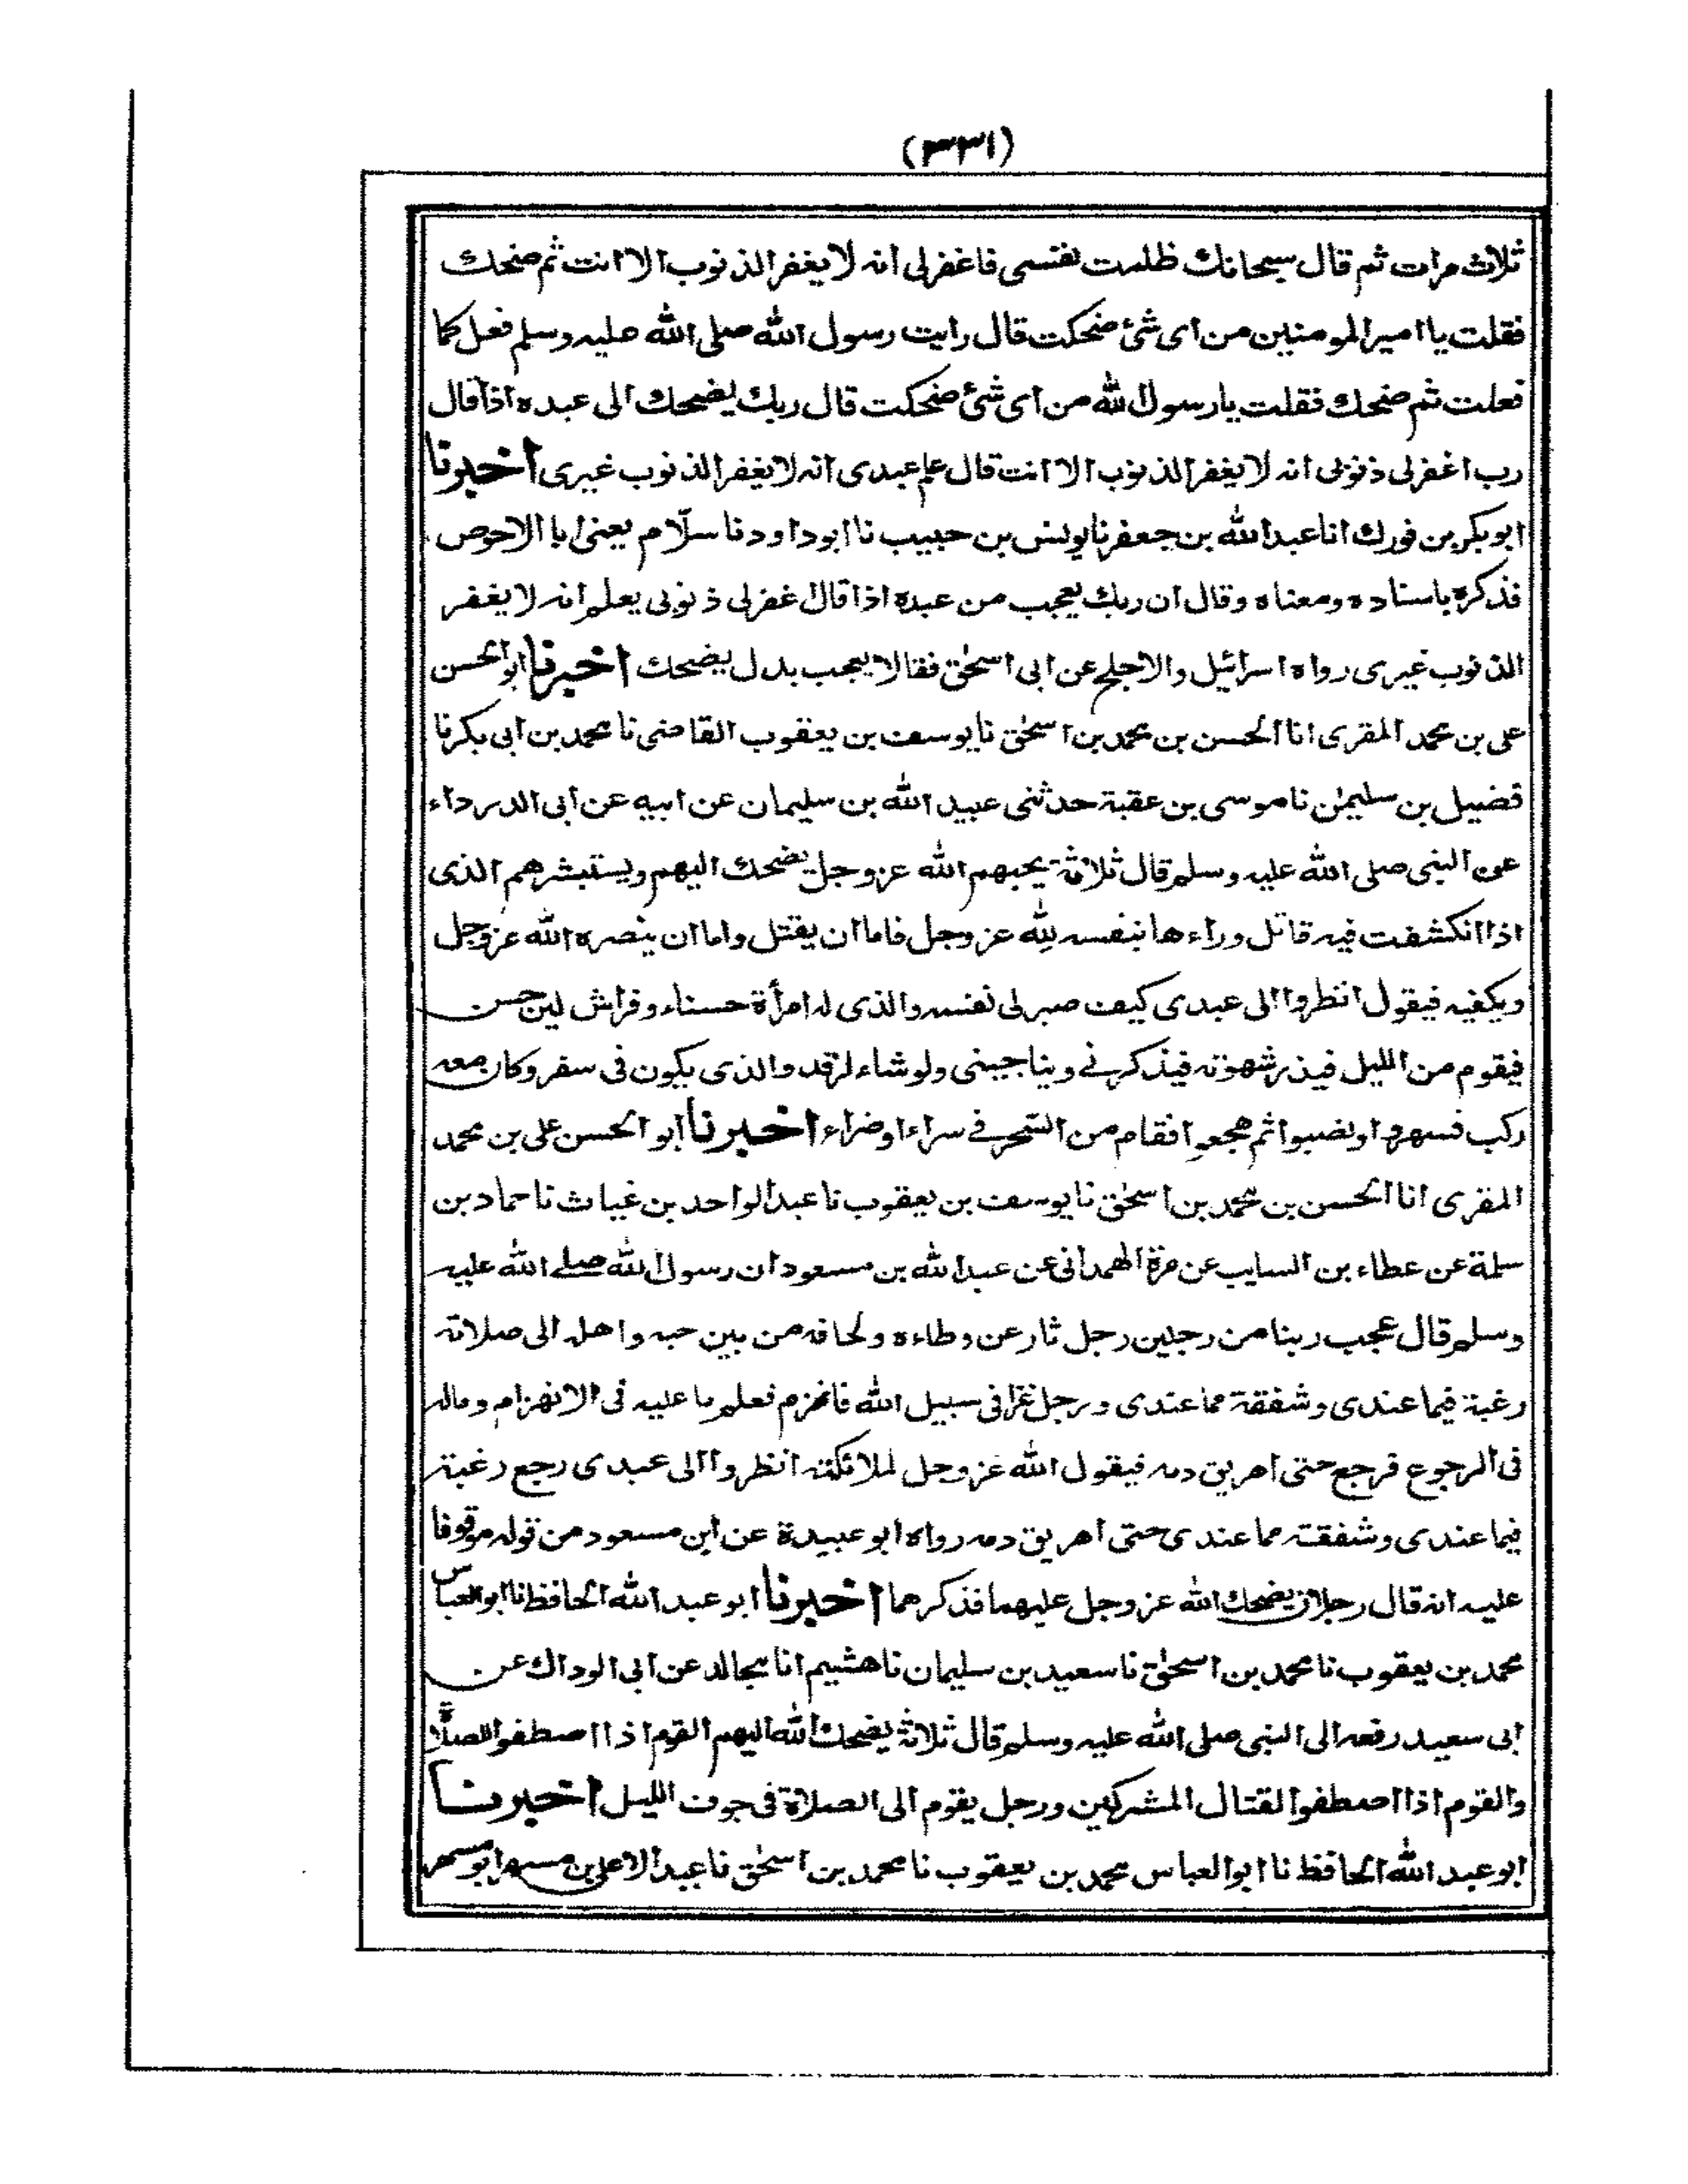 (٣٣١)
ثلاث مرات ثم قال سبحانك ظلمت نفسى فاغفرلى انه لا يغفر الذنوب الا انت ثم ضحك
فقلت يا امير المومنين من اى شئ ضحكت قال رايت رسول الله صلى الله عليه وسلم فعل كما
فعلت ثم ضحك فقلت يا رسول الله من اى شئ ضحكت قال ربك ليضحك الى عبده اذا قال
رب اغفرلى ذنوبى انه لا يغفر الذنوب الا انت قال علم عبدى انه لا يغفر الذنوب غيرى اخبرنا
ابو بكر بن فورك انا عبد الله بن جعفر نا يونس بن حبيب نا ابو داود نا سلّام يعنى ابا الاحوص
فذكره باسناده ومعناه وقال ان ربك يعجب من عبده اذا قال اغفرلى ذنوبى يعلم انه لا يغفر
الذنوب غيرى رواه اسرائيل والاجلح عن ابى اسحٰق فقالا يعجب بدل يضحك اخبرنا ابو الحسن
على بن محمد المقرى انا الحسن بن محمد بن اسحٰق نا يوسف بن يعقوب القاضى نا محمد بن ابى بكر نا
فضيل بن سليمٰن نا موسى بن عقبة حدثنى عبيد الله بن سليمان عن ابيه عن ابى الدرداء
عن النبى صلى الله عليه وسلم قال ثلاثة يحبهم الله عز وجل يضحك اليهم ويستبشرهم الذى
اذا انكشفت فيه قاتل وراءها بنفسه لله عز وجل فاما ان يقتل واما ان ينصره الله عز وجل
ويكفيه فيقول انظروا الى عبدى كيف صبر لى نفسه والذى له امرأة حسناء وفراش لين حسن
فيقوم من الليل فيذر شهوته فيذكرنى ويناجينى ولو شاء لرقد والذى يكون فى سفر وكان معه
ركب فسهروا ونصبوا ثم هجعوا فقام من السحر فى سراء او ضراء اخبرنا ابو الحسن على بن محمد
المقرى انا الحسن بن محمد بن اسحٰق نا يوسف بن يعقوب نا عبد الواحد بن غياث نا حماد بن
سلمة عن عطاء بن السايب عن مرة الهمدانى عن عبد الله بن مسعود ان رسول الله صلى الله عليه
وسلم قال عجب ربنا من رجلين رجل ثار عن وطاءه ولحافه من بين حبه واهله الى صلاته
رغبة فيما عندى وشفقة مما عندى ورجل غزا فى سبيل الله فانهزم فعلم ما عليه فى الانهزام وماله
فى الرجوع فرجع حتى اهريق دمه فيقول الله عز وجل لملائكته انظروا الى عبدى رجع رغبة
فيما عندى وشفقته مما عندى حتى اهريق دمه رواه ابو عبيدة عن ابن مسعود من قوله موقوفا
عليه انه قال رجلان يضحك الله عز وجل عليهما فذكرهما اخبرنا ابو عبد الله الحافظ نا ابو العباس
محمد بن يعقوب نا محمد بن اسحٰق نا سعيد بن سليمان نا هشيم انا مجالد عن ابى الوداك عن
ابى سعيد رفعه الى النبى صلى الله عليه وسلم قال ثلاثة يضحك الله اليهم القوم اذا اصطفوا للصلٰوة
والقوم اذا اصطفوا لقتال المشركين ورجل يقوم الى الصلاة فى جوف الليل اخبرنا
ابو عبد الله الحافظ نا ابو العباس محمد بن يعقوب نا محمد بن اسحٰق نا عبد الاعلى بن مسهر ابو مسهر